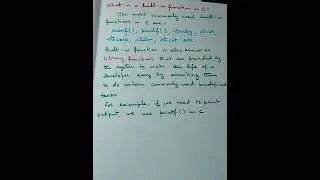 What is a built-in function in C?
The most commonly used built-in
functions in C are:
scanf(), printf(), strcpy, strcmp,
strlen, strcat etc.
Built-in function is also known as
library functions that are provided by
the system to make the life of a
developer easy by assisting them
to do certain commonly used predefined
tasks.
For example, if we need to print
output, we use printf() in C